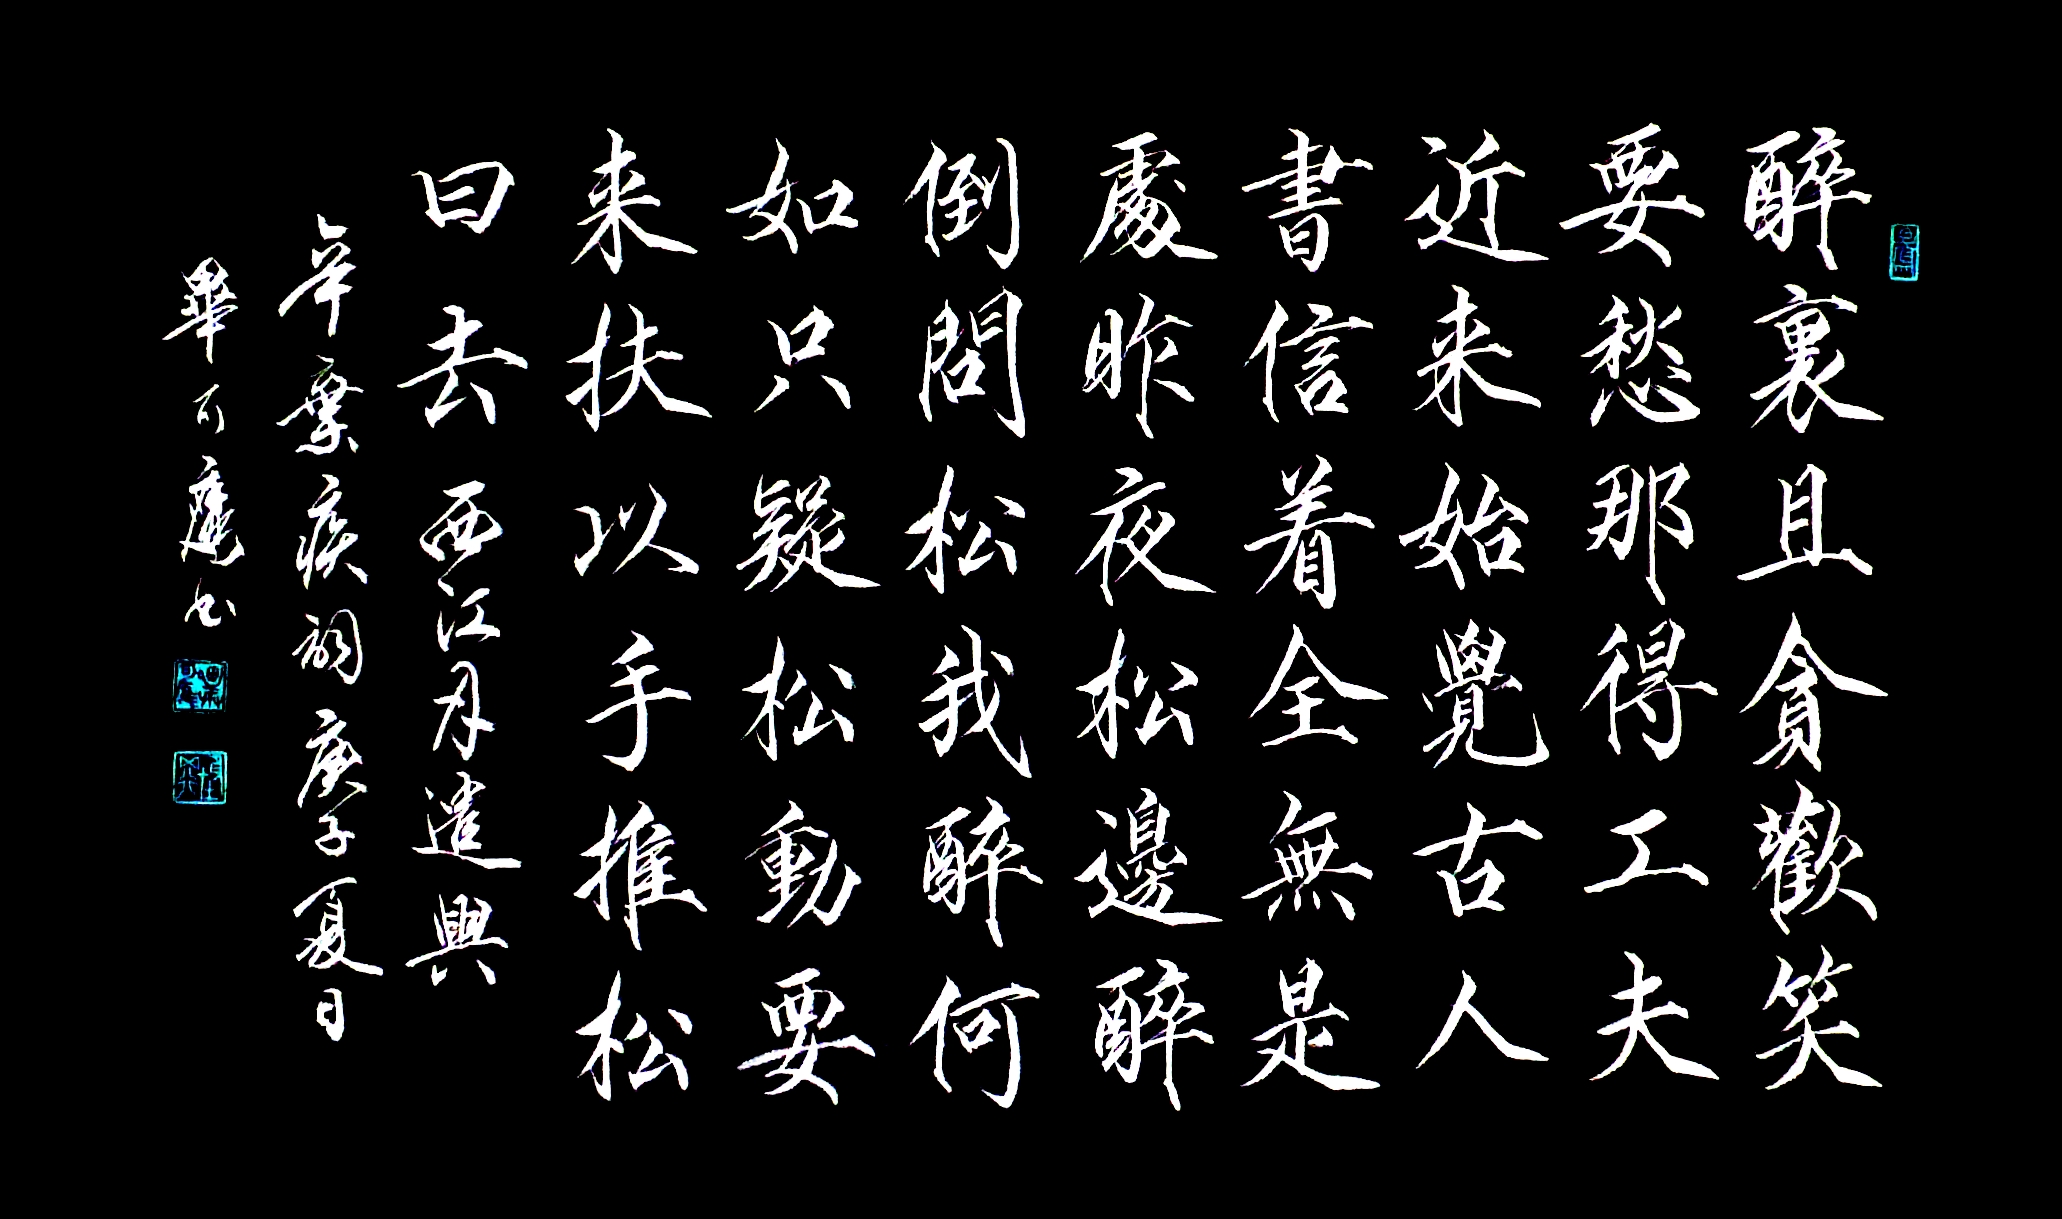 醉裏且貪歡笑
要愁那得工夫
近来始覺古人
書信着全無是
處昨夜松邊醉
倒問松我醉何
如只疑松動要
来扶以手推松
曰去 西江月遣興
辛棄疾詞 庚子夏日
畢可鷹书